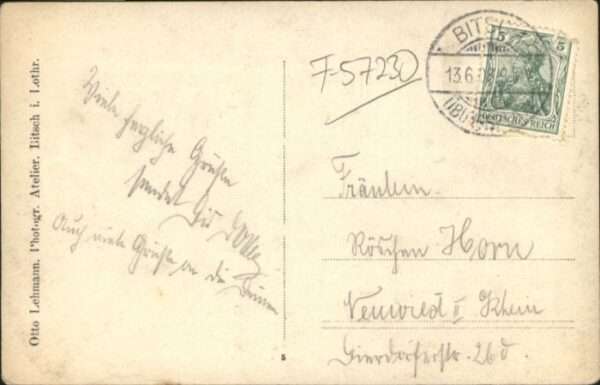 Otto Lehmann, Photogr. Atelier, Bitsch i. Lothr.
Viele herzliche Grüße
sendet Dir
Auch viele Grüße an die
F-5723D
BITSCH
13.6.08
(ÜBUNGS
5 5
DEUTSCHES REICH
Fräulein
Röschen Horn
Neuwied a Rhein
Dierdorferstr. 26d.
5